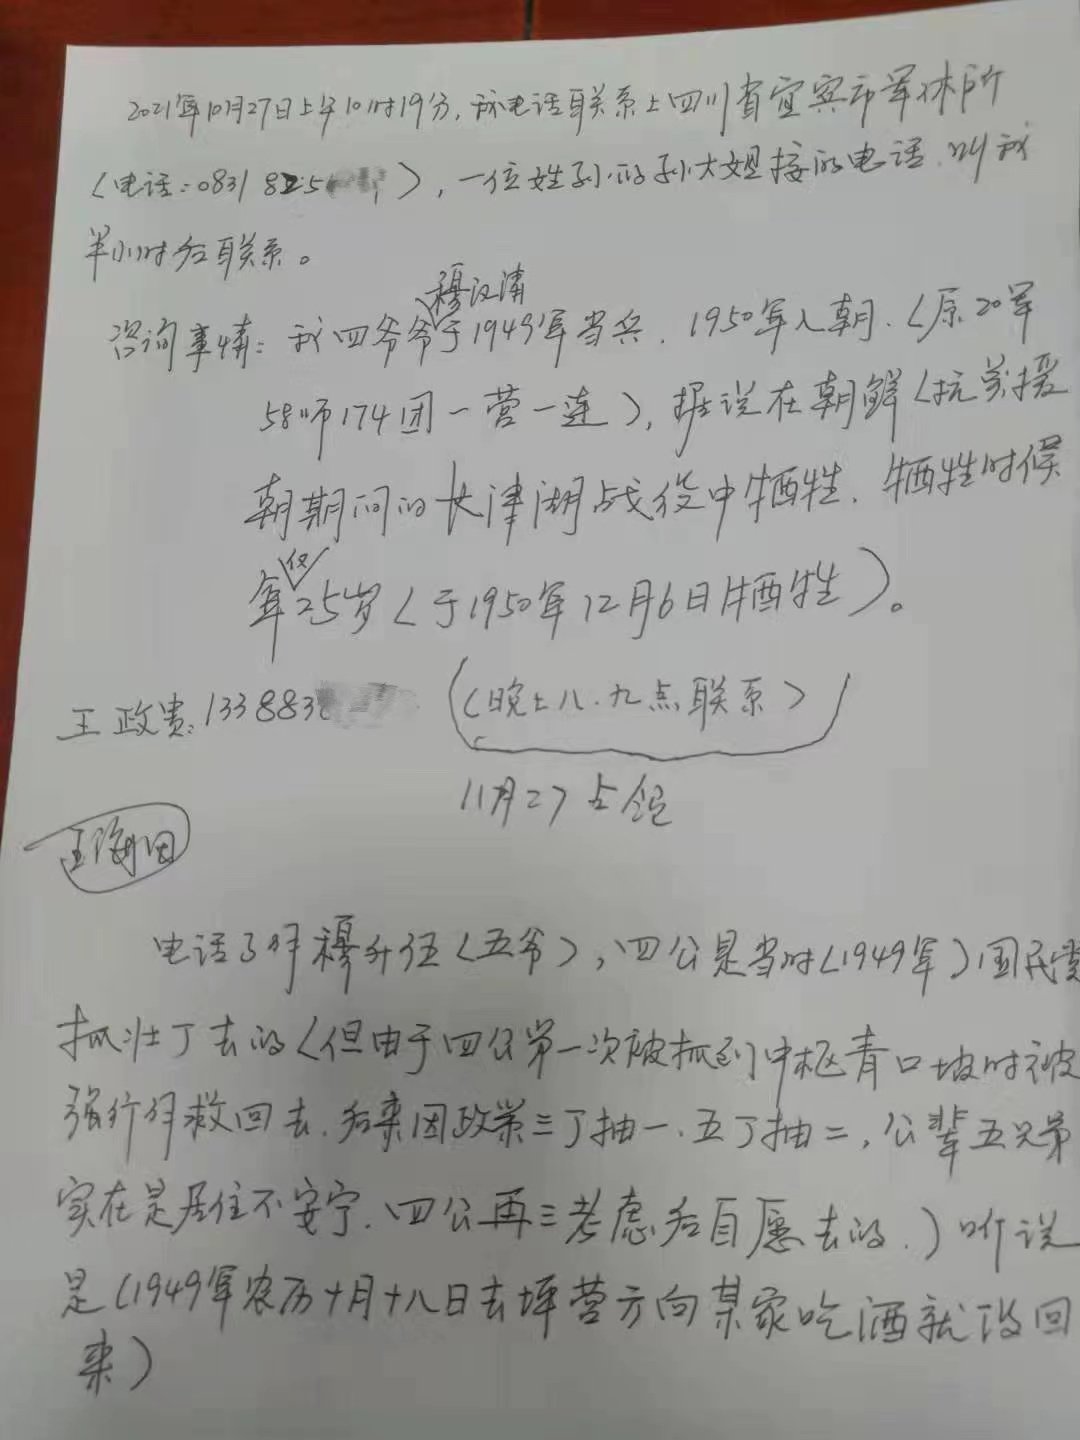 2021年10月27日上午10时19分,我电话联系上四川省宜宾市军休所
(电话:0831 825),一位姓孙的孙大姐接的电话.叫我
半小时后联系。
穆汉清
咨询事情:我四爷爷于1949年当兵.1950年入朝.(原20军
58师174团一营一连),据说在朝鲜(抗美援
朝期间的长津湖战役中牺牲.牺牲时候
仅
年25岁(于1950年12月6日牺牲)。
王政贵:133883
(晚上八.九点联系)
11月27
王海田
电话了解穆升伍(五爷),四公是当时(1949年)国民党
抓壮丁去的(但由于四公第一次被抓到中枢青口坡时被
强行解救回去.后来因政策三丁抽一.五丁抽二,公辈五兄弟
实在是居住不安宁.四公再三考虑后自愿去的.)听说
是(1949年农历十月十八日去坪营方向某家吃酒就没回
来)